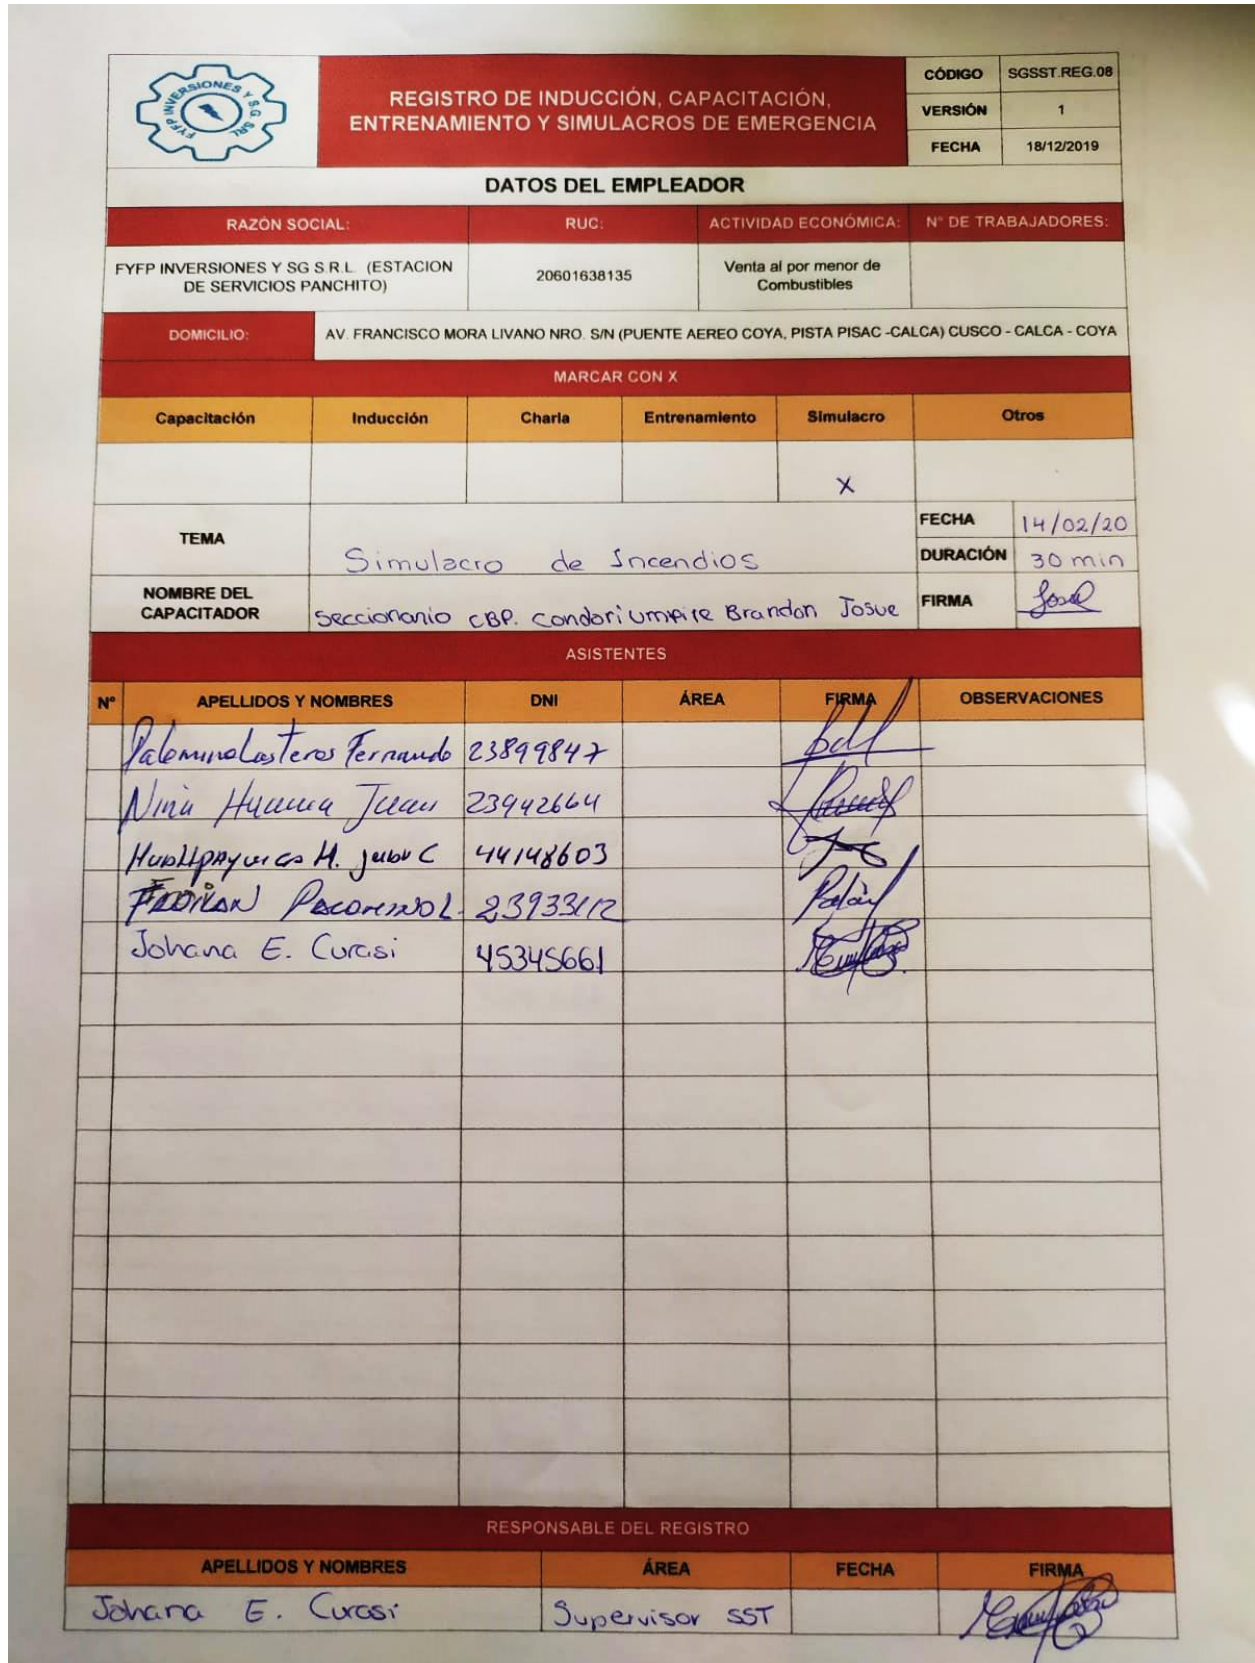 FYFP INVERSIONES Y S.G. SRL
REGISTRO DE INDUCCIÓN, CAPACITACIÓN,
ENTRENAMIENTO Y SIMULACROS DE EMERGENCIA
CÓDIGO SGSST.REG.08
VERSIÓN 1
FECHA 18/12/2019
DATOS DEL EMPLEADOR
RAZÓN SOCIAL: RUC: ACTIVIDAD ECONÓMICA: N° DE TRABAJADORES:
FYFP INVERSIONES Y SG S.R.L. (ESTACION
DE SERVICIOS PANCHITO)
20601638135
Venta al por menor de
Combustibles
DOMICILIO: AV. FRANCISCO MORA LIVANO NRO. S/N (PUENTE AEREO COYA, PISTA PISAC -CALCA) CUSCO - CALCA - COYA
MARCAR CON X
Capacitación Inducción Charla Entrenamiento Simulacro Otros
X
TEMA Simulacro de Incendios
FECHA 14/02/20
DURACIÓN 30 min
NOMBRE DEL
CAPACITADOR
Seccionario CBP. Condori Umpire Brandon Josue
FIRMA
ASISTENTES
N° APELLIDOS Y NOMBRES DNI ÁREA FIRMA OBSERVACIONES
Fernando 23899847
Nina Huama Juan 23942664
44148603
23933112
Johana E. Curasi 45345661
RESPONSABLE DEL REGISTRO
APELLIDOS Y NOMBRES ÁREA FECHA FIRMA
Johana E. Curasi Supervisor SST